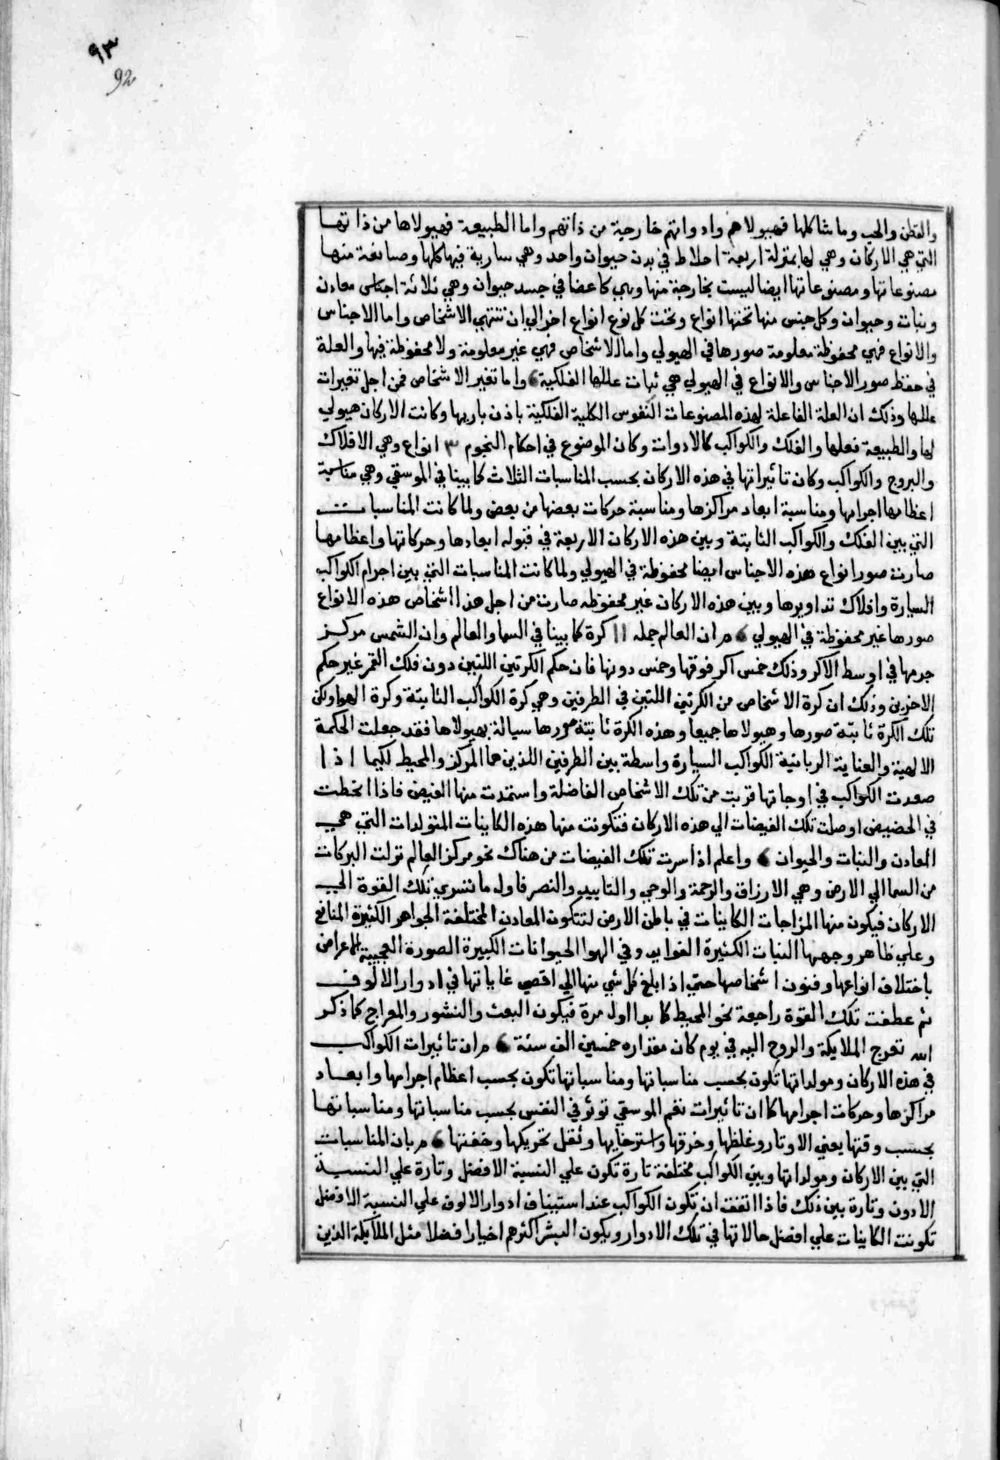 ٩٣
92
والقطن والحب وما شاكلها فهيولاهم وادواتهم خارجة من ذاتهم واما الطبيعة فهيولاها من ذاتها
التي هي الاركان وهي لها بمنزلة اربعة اخلاط في بدن حيوان واحد وهي سارية فيها كلها وصانعة منها
مصنوعاتها ومصنوعاتها ايضا ليست بخارجة منها وهي كاعضا في جسد حيوان وهي ثلاثة اجناس معادن
ونبات وحيوان وكل جنس منها تحتها انواع وتحت كل نوع انواع اخر الي ان تنتهي الاشخاص واما الاجناس
والانواع فهي محفوظة معلومة صورها في الهيولي واما الاشخاص فهي غير معلومة ولا محفوظة فيها والعلة
في حفظ صور الاجناس والانواع في الهيولي هي ثبات عللها الفلكية واما تغير الاشخاص فمن اجل تغيرات
عللها وذلك ان العلة الفاعلة لهذه المصنوعات النفوس الكلية الفلكية باذن باريها وكانت الاركان هيولي
لها والطبيعة فعلها والفلك والكواكب كالادوات وكان الموضوع في احكام النجوم ٣ انواع وهي الافلاك
والبروج والكواكب وكان تاثيراتها في هذه الاركان بحسب المناسبات الثلاث كما بينا في الموسقي وهي مناسبة
اعظامها اجرامها ومناسبة ابعاد مراكزها ومناسبة حركات بعضها من بعض ولما كانت المناسبات
التي بين الفلك والكواكب الثابتة وبين هذه الاركان الاربعة في قبوله ابعادها وحركاتها واعظامها
صارت صور انواع هذه الاجناس ايضا محفوظة في الهيولي ولما كانت المناسبات التي بين اجرام الكواكب
السيارة وافلاك تداويرها وبين هذه الاركان غير محفوظه صارت من اجل هذا اشخاص هذه الانواع
صورها غير محفوظة في الهيولي ثم ان العالم جمله ١١ كرة كما بينا في السما والعالم وان الشمس مركز
جرمها في اوسط الاكر وذلك خمس اكر فوقها وخمس دونها فان حكم الكرتين اللتين دون فلك القمر غير حكم
الاخرين وذلك ان كرة الاشخاص من الكرتين اللتين في الطرفين وهي كرة الكواكب الثابتة وكرة الهوا ولكن
تلك الكرة ثابتة صورها وهيولاها جميعا وهذه الكرة ثابتة صورها سيالة بهيولاها فقد جعلت الحكمة
الالهية والعناية الربانية الكواكب السيارة واسطة بين الطرفين اللذين هما المركز والمحيط لكيما اذا
صعدت الكواكب في اوجاتها قربت من تلك الاشخاص الفاضلة واستمدت منها الفيض فاذا انحطت
في الحضيض اوصلت تلك الفيضات الي هذه الاركان فتكونت منها هذه الكاينات المتولدات التي هي
المعادن والنبات والحيوان واعلم اذا سرت تلك الفيضات من هناك نحو مركز العالم نزلت البركات
من السما الي الارض وهي الارزاق والرحمة والوحي والتاييد والنصر فاول ما تسري تلك القوة الي
الاركان فيكون منها المزاجات الكاينات في باطن الارض لتتكون المعادن المختلفة الجواهر الكثيرة المنافع
وعلي ظاهر وجهها النبات الكثيرة الفوايد وفي الهوا الحيوانات الكبيرة الصورة العجيبة الاعراض
باختلاف انواعها وفنون اشخاصها حتي اذا بلغ كل شي منها الي اقصي غاياتها في ادوار الالوف
ثم عطفت تلك القوة راجعة نحو المحيط كما بدا اول مرة فيكون البعث والنشور والمعراج كما ذكر
الله تعرج الملايكة والروح اليه في يوم كان مقداره خمسين الف سنة ثم ان تاثيرات الكواكب
في هذه الاركان ومولداتها تكون بحسب مناسباتها ومناسباتها تكون بحسب اعظام اجرامها وابعاد
مراكزها وحركات اجرامها كما ان تاثيرات نغم الموسقي توثر في النفس بحسب مناسباتها ومناسباتها
بحسب دقتها يعني الاوتار وغلظها وحزقها واسترخايها وثقل تحريكها وخفتها ثم بان المناسبات
التي بين الاركان ومولداتها وبين الكواكب مختلفة تارة تكون علي النسبة الافضل وتارة علي النسبة
الادون وتارة بين ذلك فاذا اتفقت ان تكون الكواكب عند استيناف ادوار الالوف علي النسبة الافضل
تكونت الكاينات علي افضل حالاتها في تلك الادوار ويكون البشر اكثرهم اخيارا فضلا مثل الملايكة الذين